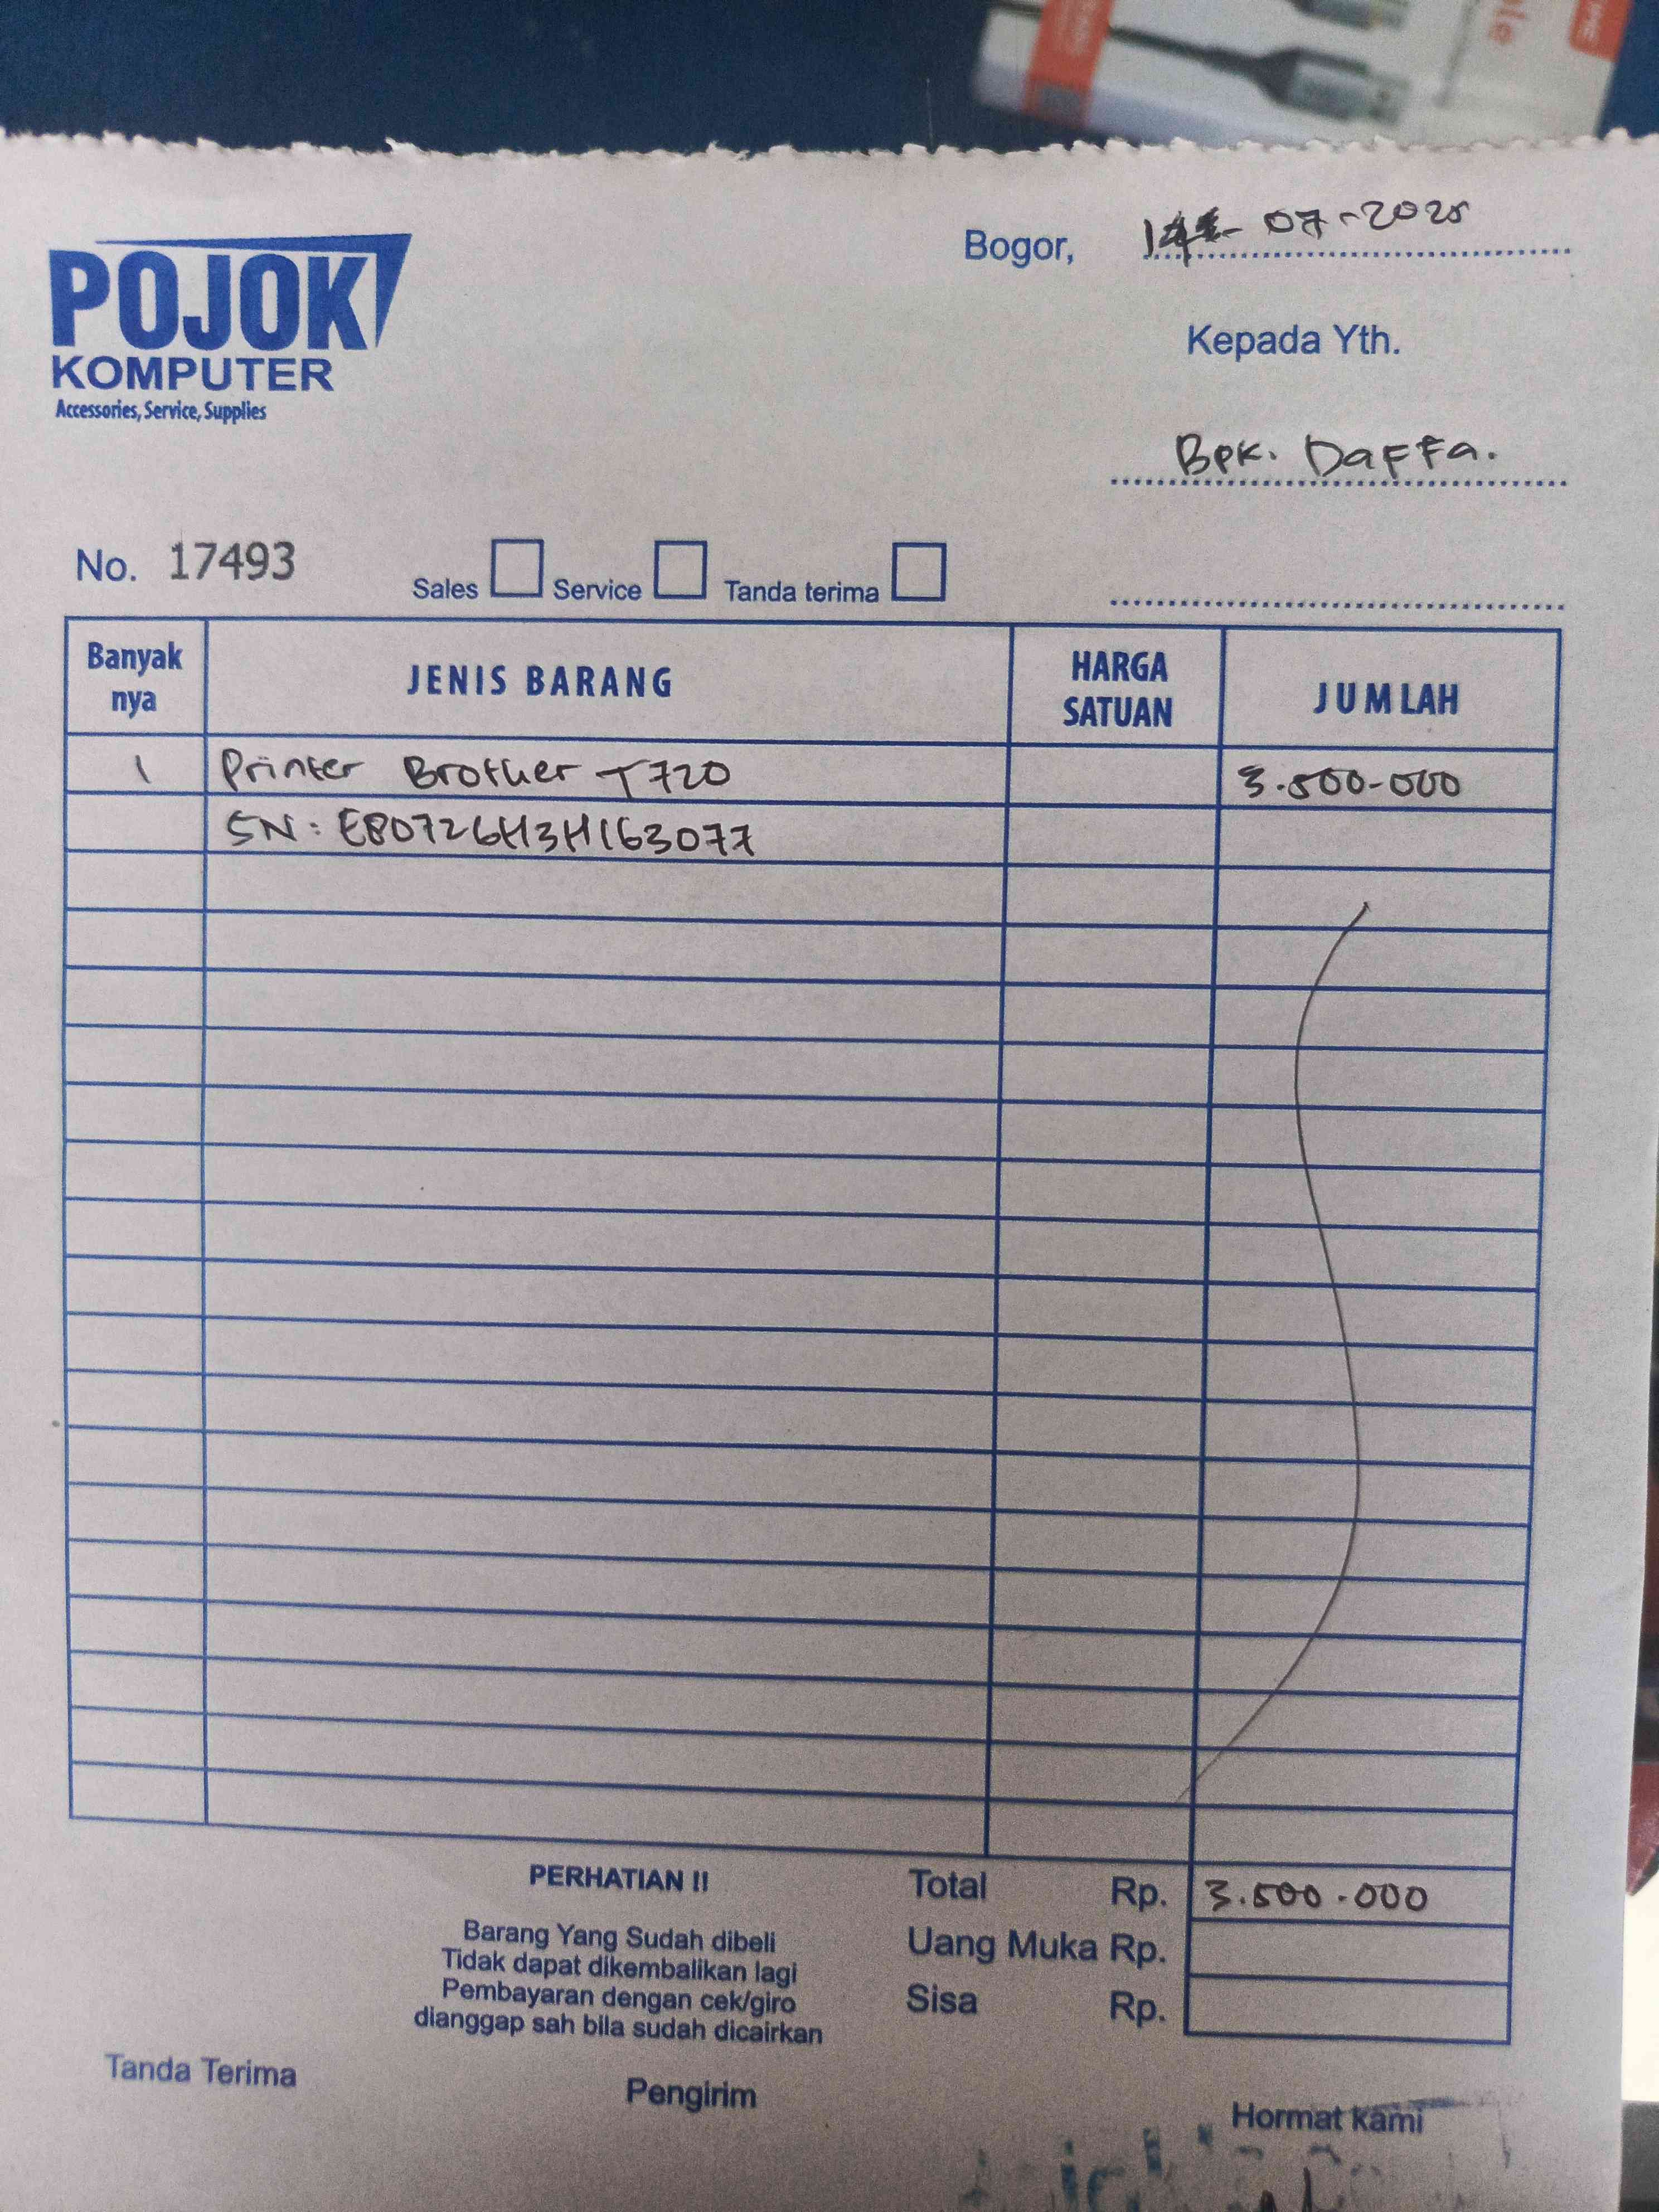 POJOK
KOMPUTER
Accessories, Service, Supplies
Bogor, 14 - 07 - 2025
Kepada Yth.
Bpk. Daffa.
No. 17493
Sales Service Tanda terima
Banyak nya JENIS BARANG HARGA SATUAN JUMLAH
1 Printer Brother T720 3.500.000
SN: E80726H3H163077
PERHATIAN !!
Barang Yang Sudah dibeli
Tidak dapat dikembalikan lagi
Pembayaran dengan cek/giro
dianggap sah bila sudah dicairkan
Total Rp. 3.500.000
Uang Muka Rp.
Sisa Rp.
Tanda Terima
Pengirim
Hormat kami